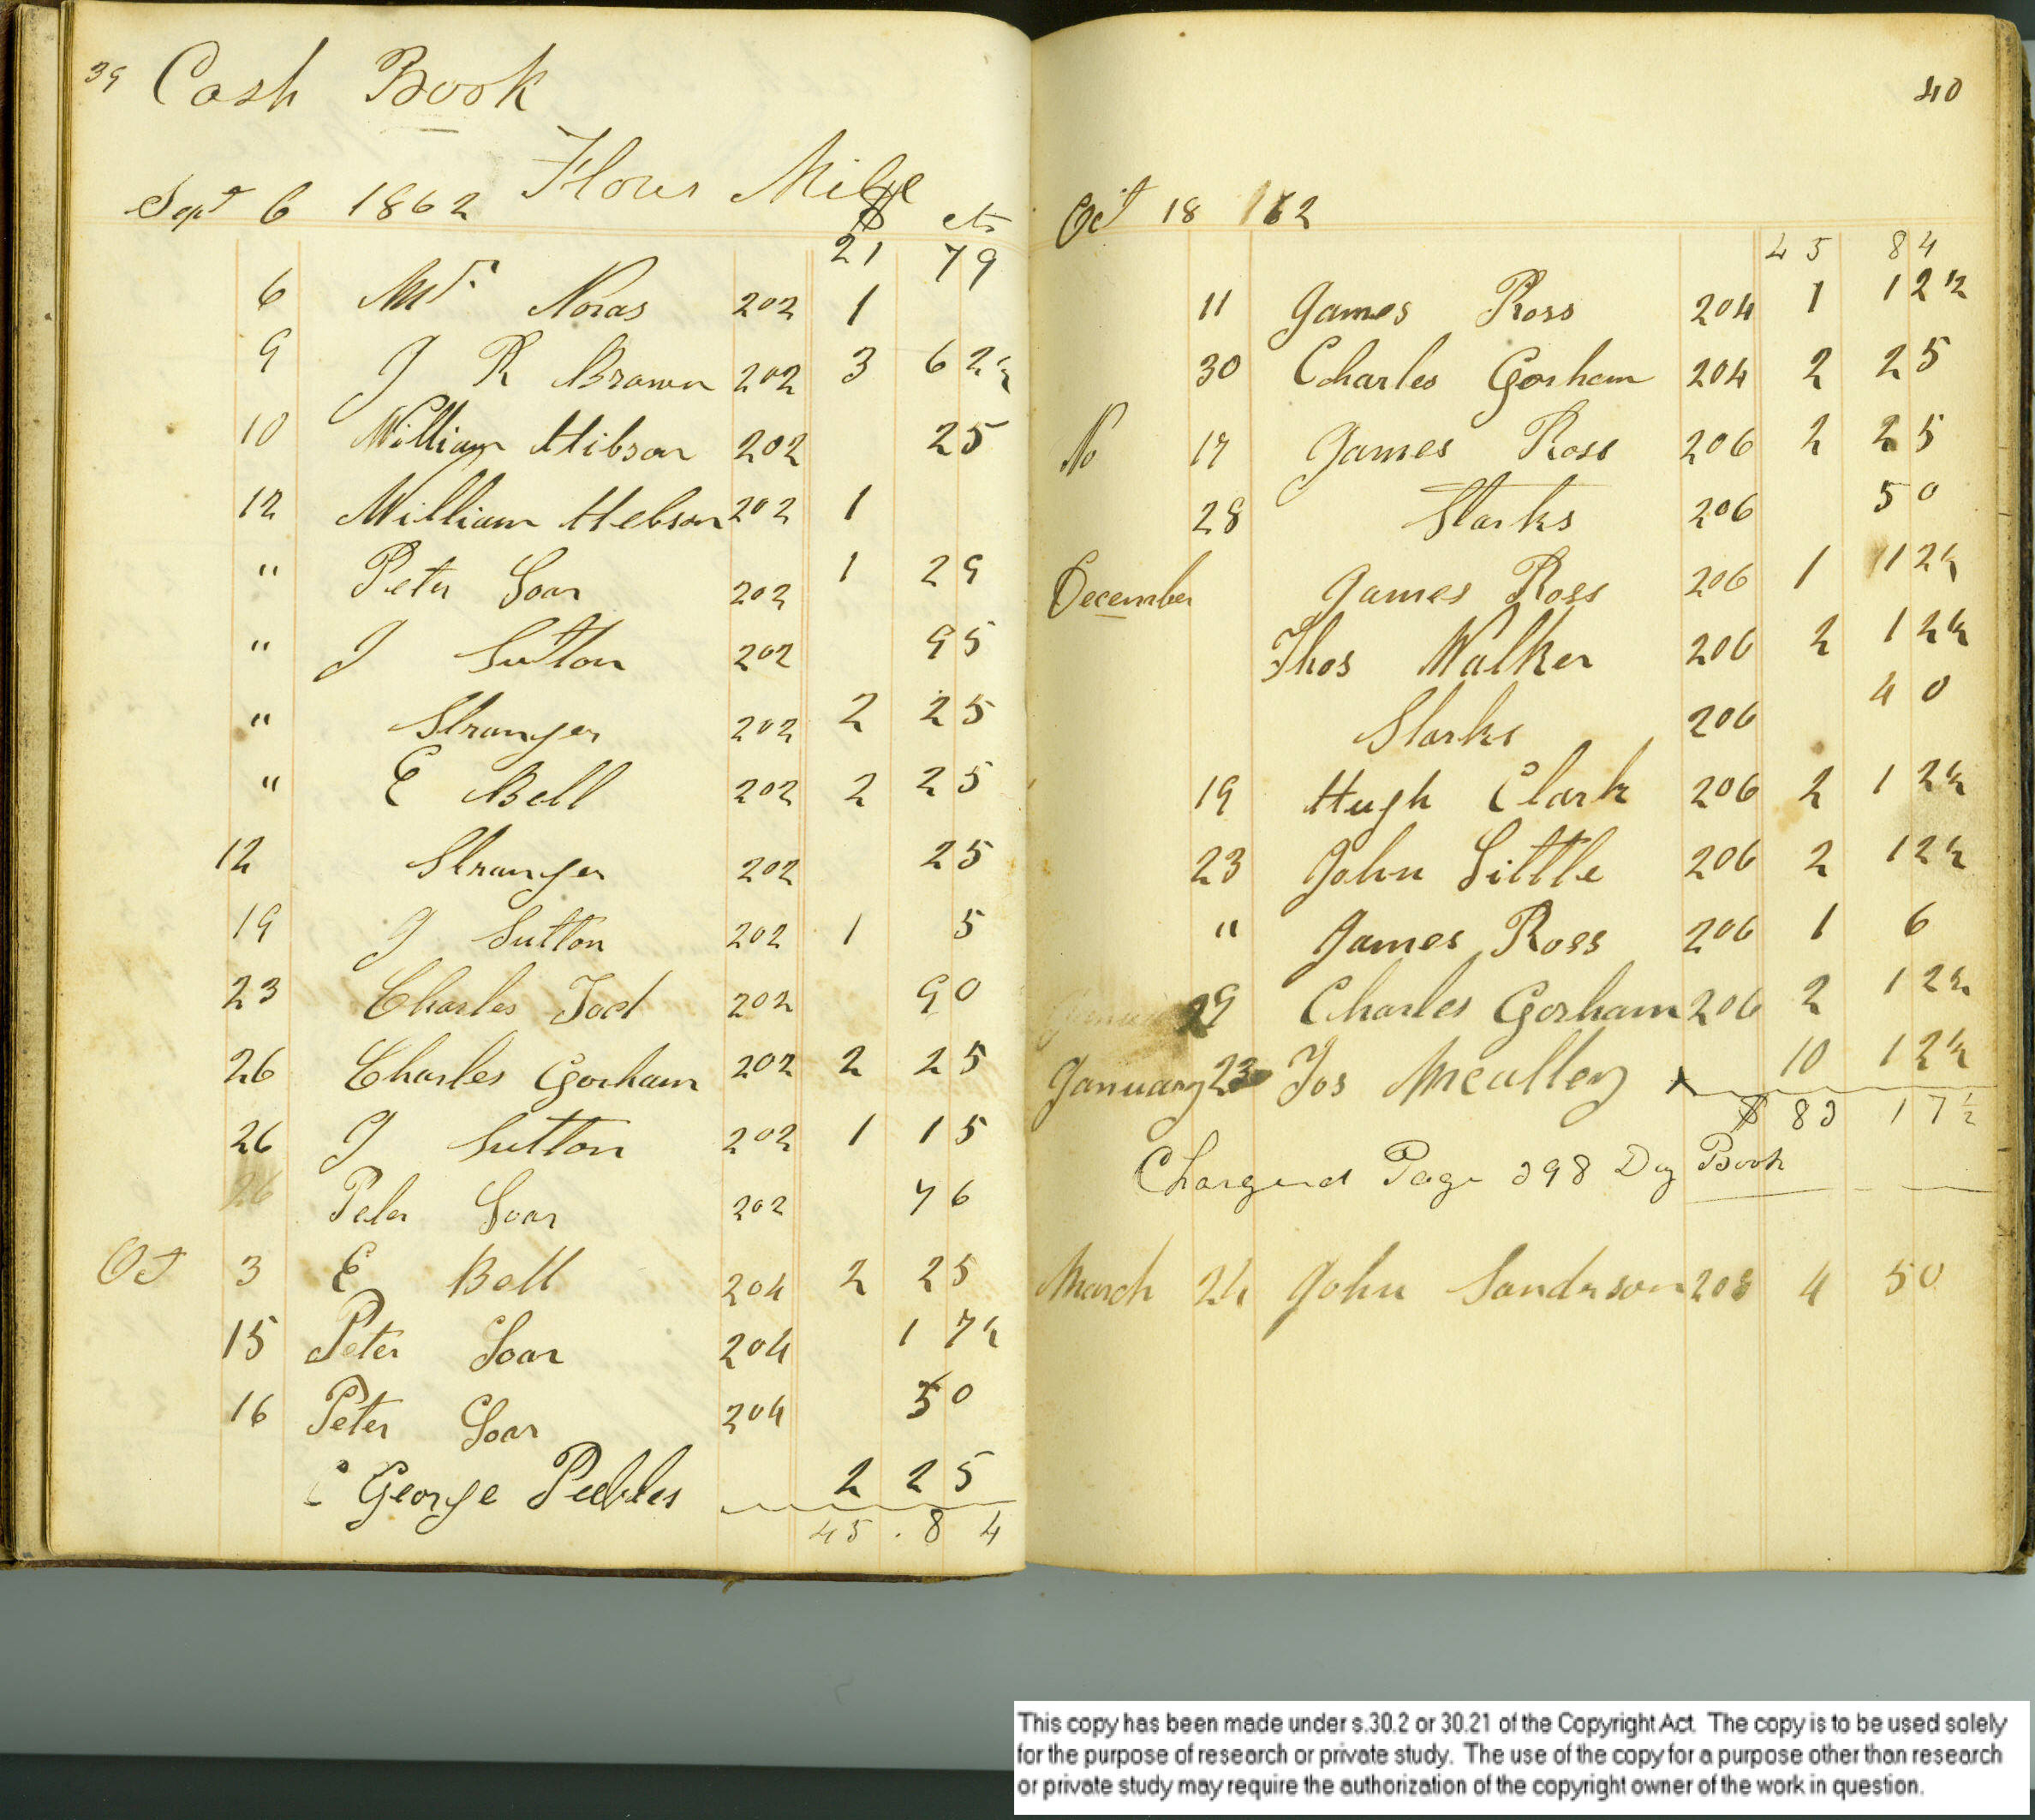 39 Cash Book
Flour Mill
Sept 6 1862 $ cts
21 79
6 Mr. Noras 202 1
9 J R Brown 202 3 62½
10 William Hibson 202 25
12 William Hebson 202 1
" Peter Soar 202 1 29
" J Sutton 202 95
" Stranger 202 2 25
" E Bell 202 2 25
12 Stranger 202 25
19 J Sutton 202 1 5
23 Charles Tod 202 90
26 Charles Gorham 202 2 25
26 J Sutton 202 1 15
26 Peter Soar 202 76
Oct 3 E Bell 204 2 25
15 Peter Soar 204 1 7½
16 Peter Soar 204 50
George Peebles 2 25
45.84
40
Oct 18 162
45 84
11 James Ross 204 1 12½
30 Charles Gorham 204 2 25
No 17 James Ross 206 2 25
28 Starks 206 50
December James Ross 206 1 12½
Thos Walker 206 2 12½
Starks 206 40
19 Hugh Clark 206 2 12½
23 John Little 206 2 12½
" James Ross 206 1 6
29 Charles Gorham 206 2 12½
January 23 Jos Mculley x 10 12½
$ 17½
Charged Page 298 Day Book
March 24 John Sandrson 208 4 50
This copy has been made under s.30.2 or 30.21 of the Copyright Act. The copy is to be used solely
for the purpose of research or private study. The use of the copy for a purpose other than research
or private study may require the authorization of the copyright owner of the work in question.